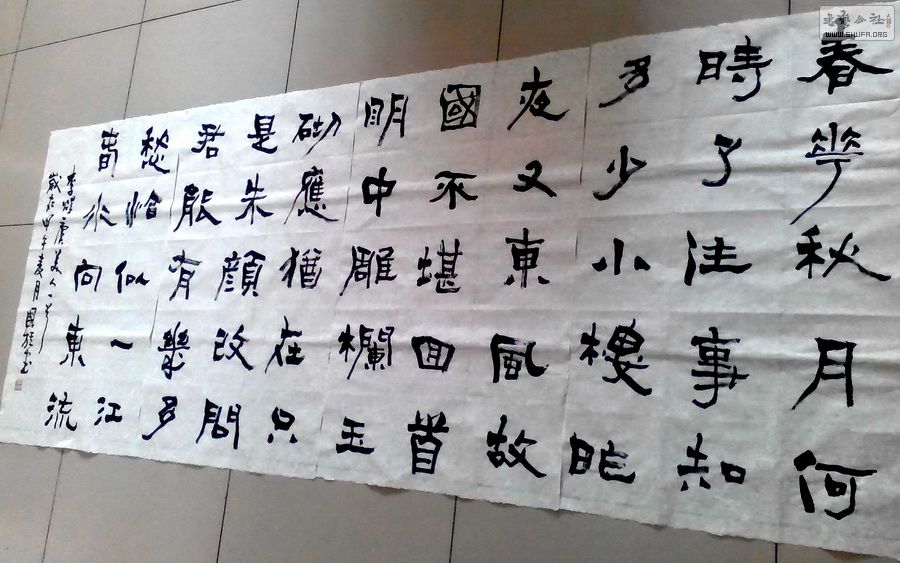 春華秋月何
時了往事知
多少小樓昨
夜又東風故
國不堪回首
明中雕欄玉
砌應猶在只
是朱顔改問
君能有幾多
愁恰似一江
春水向東流
李煜虞美人一首
歲在甲午夏月國書
書藝公社
WWW.SHUFA.ORG